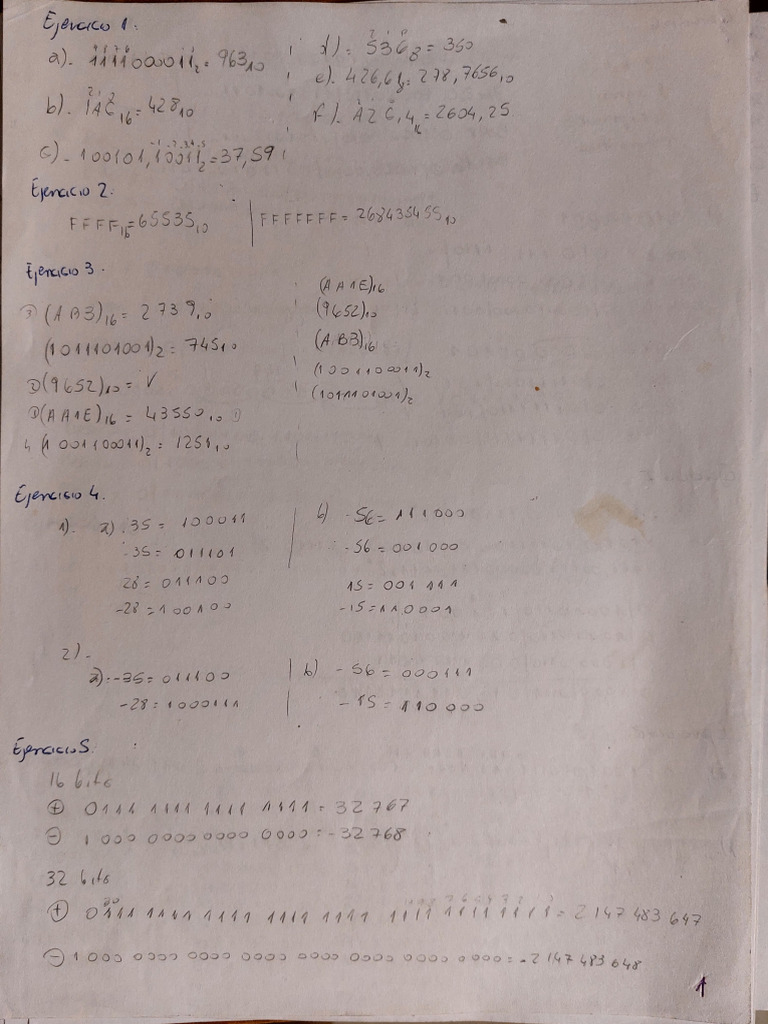 Ejercicio 1:
a)- 1111000011₂ = 963₁₀
b)- 1AC₁₆ = 428₁₀
c)- 100101,10011₂ = 37,59
d)- 536₈ = 350
e)- 426,61₈ = 278,7656₁₀
f)- A2C,4₁₆ = 2604,25
Ejercicio 2:
FFFF₁₆ = 65535₁₀ | FFFFFFF = 268435455₁₀
Ejercicio 3.
(AB3)₁₆ = 2739₁₀
(1011101001)₂ = 745₁₀
(9652)₁₀ = V
(AA1E)₁₆ = 43550₁₀
4 (10011100011)₂ = 1251₁₀
(AA1E)₁₆
(9652)₁₀
(AB3)₁₆
(10011100011)₂
(1011101001)₂
Ejercicio 4.
1). a) 35 = 100011
-35 = 011101
28 = 011100
-28 = 100100
b) -56 = 111000
-56 = 001000
15 = 001111
-15 = 110001
2)-
a) -35 = 011100
-28 = 1000111
b) -56 = 000111
-15 = 110000
Ejercicio 5.
16 bits
⊕ 0111 1111 1111 1111 = 32767
⊖ 1000 0000 0000 0000 = -32768
32 bits
⊕ 0111 1111 1111 1111 1111 1111 1111 1111 = 2147 483 647
⊖ 1000 0000 0000 0000 0000 0000 0000 0000 = -2147 483 648
1